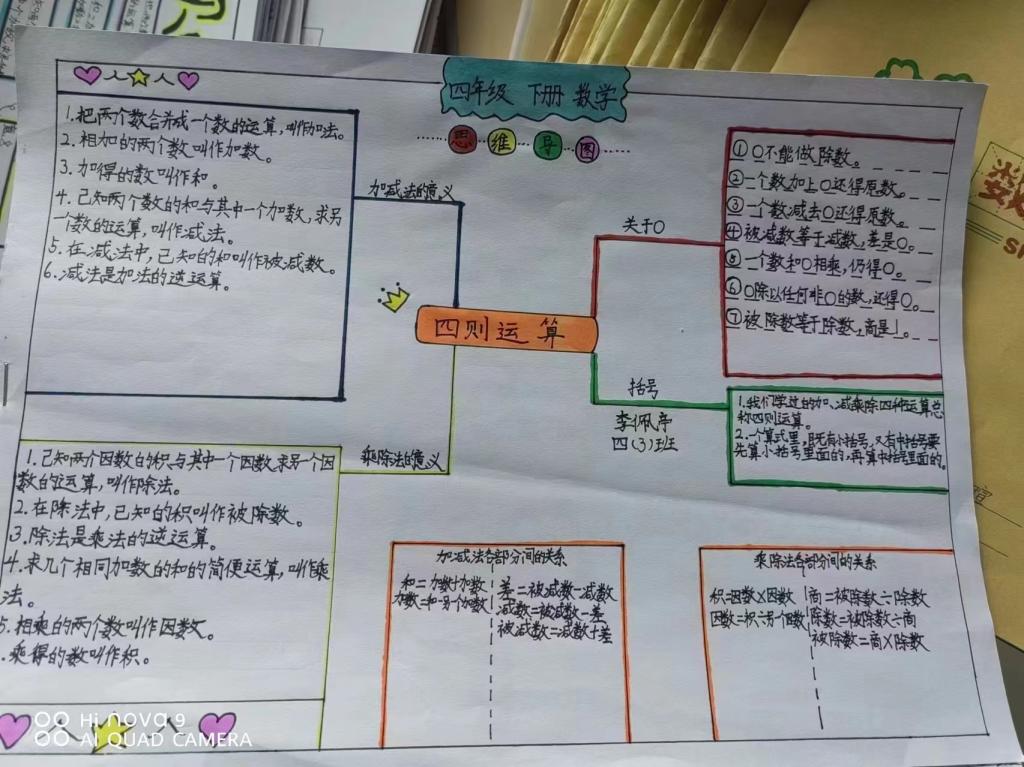 四年级 下册 数学
思维导图
1.把两个数合并成一个数的运算,叫作加法。
2.相加的两个数叫作加数。
3.加得的数叫作和。
4.已知两个数的和与其中一个加数,求另
一个数的运算,叫作减法。
5.在减法中,已知的和叫作被减数。
6.减法是加法的逆运算。
加减法的意义
四则运算
关于0
①0不能做除数。
②一个数加上0还得原数。
③一个数减去0还得原数。
④被减数等于减数,差是0。
⑤一个数和0相乘,仍得0。
⑥0除以任何非0的数,还得0。
⑦被除数等于除数,商是1。
括号
李佩序
四(3)班
1.我们学过的加、减乘除四种运算总
称四则运算。
2.一个算式里,既有小括号,又有中括号要
先算小括号里面的,再算中括号里面的。
乘除法的意义
1.已知两个因数的积与其中一个因数,求另一个因
数的运算,叫作除法。
2.在除法中,已知的积叫作被除数。
3.除法是乘法的逆运算。
4.求几个相同加数的和的简便运算,叫作乘
法。
5.相乘的两个数叫作因数。
.乘得的数叫作积。
加减法各部分间的关系
和=加数+加数
加数=和-另一个加数
差=被减数-减数
减数=被减数-差
被减数=减数+差
乘除法各部分间的关系
积=因数×因数
因数=积÷另一个因数
商=被除数÷除数
除数=被除数÷商
被除数=商×除数
Hi nova 9
AI QUAD CAMERA